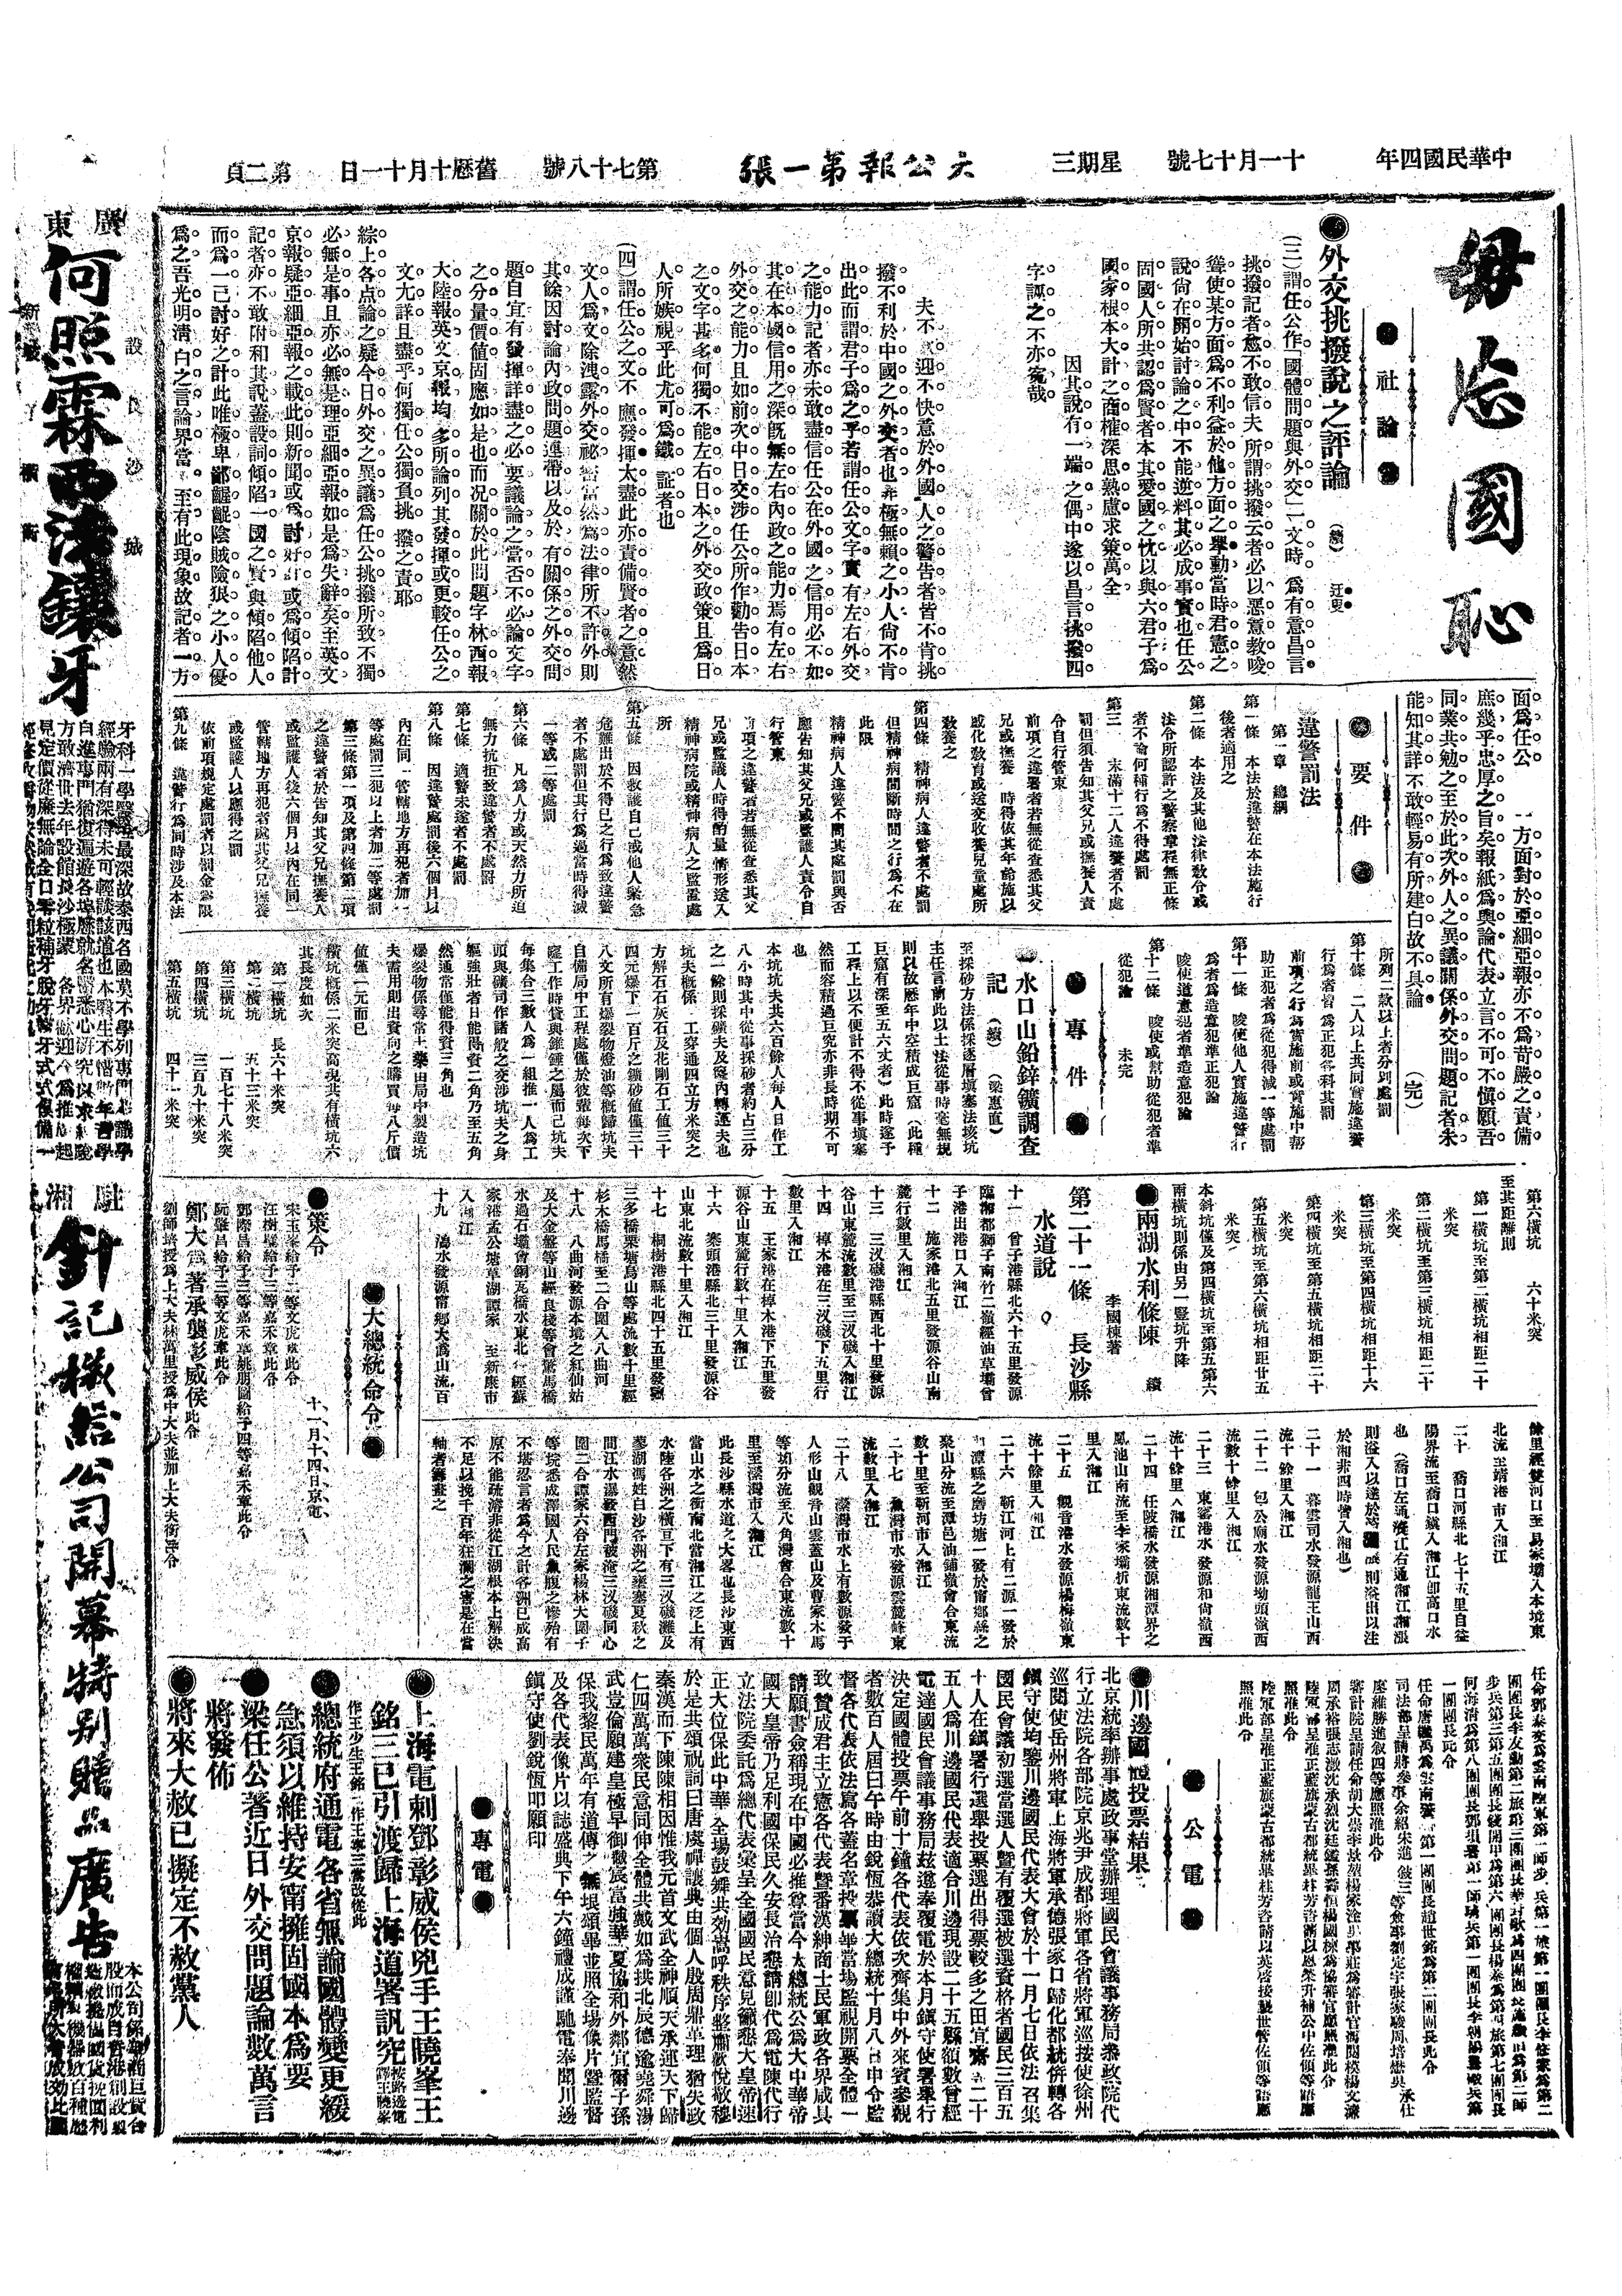 中華民國四年
十一月十七號
星期三
大公報第一張
第七十八號
舊歷十月十一日
第二頁
毋忘國恥
社論
外交挑撥說之評論
(續)
(三)謂任公作「國體問題與外交」一文時 為有意昌言
挑撥記者愈不敢信夫 所謂挑撥云者必以惡意教唆
聳使某方面為不利益於他方面之舉動當時君憲之
說尙在開始討論之中不能逆料其必成事實也任公
固國人所共認為賢者本其愛國之忱以與六君子為
國家根本大計之商榷深思熟慮求策萬全
因其說有一端 之偶中遂以昌言挑撥四
字誣之 不亦寃哉
夫不 迎不快意於外國 人之警告者皆不肯挑
撥不利於中國之外交者也 非極無賴之小人尙不肯
出此而謂君子為之乎若謂任公文字實有左右外交
之能力記者亦未敢盡信任公在外國之信用必不如
其在本國信用之深旣無左右內政之能力焉有左右
外交之能力且如前次中日交涉任公所作勸告日本
之文字甚多何獨不能左右日本之外交政策且為日
人所嫉視乎此尤可為鐵 証者也
(四)謂任公之文不 應發揮太盡此亦責備賢者之意然
文人為文除洩露外交祕密當然為法律所不許外則
其餘因討論內政問題連帶以及於 有關係之外交問
題自宜有發揮詳盡之必 要議論之當否不必論文字
之分量價值固應如是也而况關於此問題字林西報
大陸報英文京報均 多所論列其發揮或更較任公之
文尤詳且盡乎何獨任公獨負挑 撥之責耶
綜上各点論之疑今日外交之異議為任公挑撥所致不獨
必無是事且亦必無是理亞細亞報如是為失辭矣至英文
京報疑亞細亞報之載此則新聞或為討好 或為傾陷計
記者亦不敢附和其說蓋設詞傾陷一國之賢 與傾陷他人
而為一己討好之計此唯極卑鄙齷齪陰賊險狠 之小人優
為之吾光明清 白之言論界當 至有此現象故記者一方
面為任公 一方面對於亞細亞報亦不為苛嚴之責備
庶幾乎忠厚之旨矣報紙為輿論代表立言不可不慎願吾
同業共勉之至於此次外人之異議關係外交問題記者未
能知其詳不敢輕易有所建白故不具論 (完)
要件
違警罰法
第一章 總綱
第一條 本法於違警在本法施行
後者適用之
第二條 本法及其他法律敎令或
法令所認許之警察章程無正條
者不論何種行為不得處罰
第三 未滿十二人違警者不處
罰但須告知其父兄或撫養人責
令自行管束
前項之違警者若無從查悉其父
兄或撫養 時得依其年齡施以
感化敎育或送交收養兒童處所
敎養之
第四條 精神病人違警者不處罰
但精神病間斷時間之行為不在
此限
精神病人違警不問其處罰與否
應告知其父兄或監護人責令自
行管束
前項之違警者無從查悉其父
兄或監護人時得酌量情形送入
精神病院或精神病人之監置處
所
第五條 因救護自己或他人緊急
危難出於不得已之行為致違警
者不處罰但其行為過當時得減
一等或二等處罰
第六條 凡為人力或天然力所迫
無力抗拒致違警者不處罰
第七條 違警未遂者不處罰
第八條 因違警處罰後六個月以
內在同一管轄地方再犯者加一
等處罰三犯以上者加二等處罰
第三條第一項及第四條第二項
之違警者於告知其父兄撫養人
或監護人後六個月以內在同一
管轄地方再犯者處其父兄撫養
或監護人以應得之罰
依前項規定處罰者以罰金為限
第九條 違警行為同時涉及本法
所列二款以上者分別處罰
第十條 二人以上共同實施違警
行為者皆為正犯各科其罰
前項之行為實施前或實施中幫
助正犯者為從犯得減一等處罰
第十一條 唆使他人實施違警行
為者為造意犯準正犯論
唆使造意犯者準造意犯論
第十二條 唆使或幫助從犯者準
從犯論 未完
專件
水口山鉛鋅鑛調查
記 (續) (梁惠直)
至採砂方法係採逐層填塞法該坑
主任言前此以土法從事時毫無規
則以故歷年中空積成巨窟(此種
巨窟有深至五六丈者)此時遂予
工程上以不便計不得不從事填塞
然而容積過巨究亦非長時期不可
也
本坑坑夫共六百餘人每人日作工
八小時其中從事採砂者約占三分
之一餘則採礦夫及窿內轉運夫也
坑夫槪係 工穿通四立方米突之
方解石石灰石及花剛石工值三十
四元爆下一百斤之鑛砂值僅三十
八文所有爆裂物燈油等槪歸坑夫
自備局中工程處僅於彼輩每次下
窿工作時貸與錐錘之屬而已坑夫
每集合三數人為一組推一人為工
頭與礦司作諸般之交涉坑夫之身
軀強壯者日能得資二角乃至五角
然通常僅能得資三角也
爆裂物係尋常土藥由局中製造坑
夫需用則出資向之購買每八斤價
值僅一元而已
橫坑槪係二米突高現共有橫坑六
其長度如次
第一橫坑 長六十米突
第二橫坑 五十三米突
第三橫坑 一百七十八米突
第四橫坑 三百九十米突
第五橫坑 四十一米突
第六橫坑 六十米突
至其距離則
第一橫坑至第二橫坑相距二十
米突
第二橫坑至第三橫坑相距二十
米突
第三橫坑至第四橫坑相距十六
米突
第四橫坑至第五橫坑相距二十
米突
第五橫坑至第六橫坑相距廿五
米突
本斜坑僅及第四橫坑至第五第六
兩橫坑則係由另一豎坑升降
兩湖水利條陳 續
李國棟著
第二十一條 長沙縣
水道說
十一 曾子港縣北六十五里發源
臨湘都獅子南竹二嶺經油草塲曾
子港出港口入湘江
十二 施家港北五里發源谷山南
麓行數里入湘江
十三 三汊磯港縣西北十里發源
谷山東麓流數里至三汊磯入湘江
十四 樟木港在三汊磯下五里行
數里入湘江
十五 王家港在樟木港下五里發
源谷山東麓行數十里入湘江
十六 寨頭港縣北三十里發源谷
山東北流數十里入湘江
十七 桐樹港縣北四十五里發源
三多橋栗塘烏山等處流數十里經
杉木橋馬橋至二合圍入八曲河
十八 八曲河發源本境之紅仙姑
及大金盤等山經良棧等會駕馬橋
水過石壩會銅瓦橋水東北 經蘇
家港孟公塘草湖譚家 至新康市
入湘江
十九 溈水發源甯鄉大溈山流百
餘里經雙河口至易家壩入本境東
北流至靖港市入湘江
二十 喬口河縣北七十五里自益
陽界流至喬口鎮入湘江卽高口水
也(喬口左通資江右通湘江湘漲
則溢入以達於資 漲則溢出以注
於湘非四時皆入湘也)
二十一 暮雲司水發源龍王山西
流十餘里入湘江
二十二 包公廟水發源坳頭嶺西
流數十餘里入湘江
二十三 東窰港水發源和尙嶺西
流十餘里入湘江
二十四 任陂橋水發源湘潭界之
鳳池山南流至李家壩折東流數十
里入湘江
二十五 觀音港水發源楊梅嶺東
流十餘里入湘江
二十六 靳江河上有二源一發於
湘潭縣之磨坊塘一發於甯鄉縣之
聚山分流至潭邑油鋪嶺會合東流
數十里至靳河市入湘江
二十七 漁灣市水發源雲麓峰東
流數里入湘江
二十八 濚灣市水上有數源發于
人形山觀音山雲蓋山及曹家木馬
等垻分流至八角灣會合東流數十
里至濚灣市入湘江
此長沙縣水道之大畧也長沙東西
當山水之衝南北當湘江之泛上有
水陸各洲之橫亘下有三汊磯灘及
蓼湖馮姓白沙各洲之壅塞夏秋之
間江水瀑發西門被淹三汊磯同心
圍二合譚家六合左家楊林大圍子
等垸悉成澤國人民魚腹之慘殆有
不堪忍言者為今之計各洲已成高
原不能疏濬非從江湖根本上解決
不足以挽千百年狂瀾之害是在當
軸者籌畫之
大總統命令
十一月十四日京電
策令
宋玉峯給予二等文虎章此令
汪樹璧給予三等嘉禾章此令
鄭際昌給予三等嘉禾章姚朋圖給予四等嘉禾章此令
阮肇昌給予三等文虎章此令
鄭大為著承襲彭威侯此令
劉師培授為上大夫林萬里授為中大夫並加上大夫銜此令
司法部呈請將參事余紹宋進敍三等僉事劉定宇張家駿周培懋與承仕
虞維勝進敍四等應照准此令
照准此令
照准此令
公電
川邊國體投票結果
北京統率辦事處政事堂辦理國民會議事務局叅政院代
行立法院各部院京兆尹成都將軍各省將軍巡按使徐州
巡閱使岳州將軍上海將軍承德張家口歸化都統併轉各
鎮守使均鑒川邊國民代表大會於十一月七日依法召集
國民會議初選當選人暨有覆選被選資格者國民三百五
十人在鎮署行選舉投票選出得票較多之田宜齋等二十
五人為川邊國民代表適合川邊現設二十五縣額數曾經
電達國民會議事務局茲遵奉覆電於本月鎮守使署舉行
決定國體投票午前十鐘各代表依次齊集中外來賓參觀
者數百人屆日午時由銳恆恭讀大總統十月八日申令監
督各代表依法寫各蓋名章投票畢當場監視開票全體一
致贊成君主立憲各代表暨番漢紳商士民軍政各界咸具
請願書僉稱現在中國必推尊當今大總統公為大中華帝
國大皇帝乃足利國保民久安長治懇請卽代為電陳代行
立法院委託為總代表彙呈全國國民意見籲懇大皇帝速
正大位保此中華全場鼓舞共効嵩呼秩序整肅歡悅敬穆
於是共頌祝詞曰唐虞禪讓典由個人殷周鼎革理猶失政
秦漢而下陳陳相因惟我元首文武全神順天承運天下歸
仁四萬萬衆民意同伸全體共戴如為拱北辰德逾堯舜湯
武豈倫願建皇極早御黻扆富強華夏協和外鄰宜爾子孫
保我黎民萬年有道傳之無垠頌畢並照全場像片暨監督
及各代表像片以誌盛典下午六鐘禮成謹馳電奉聞川邊
鎮守使劉銳恆叩願印
專電
上海電刺鄭彭威侯兇手王曉峯王
銘三已引渡歸上海道署訊究
總統府通電各省無論國體變更緩
急須以維持安甯擁固國本為要
梁任公著近日外交問題論數萬言
將發佈
將來大赦已擬定不赦黨人
廣東
何照霖西法鑲牙
設長沙城
駐湘
針記機器公司開幕特別贈品廣告